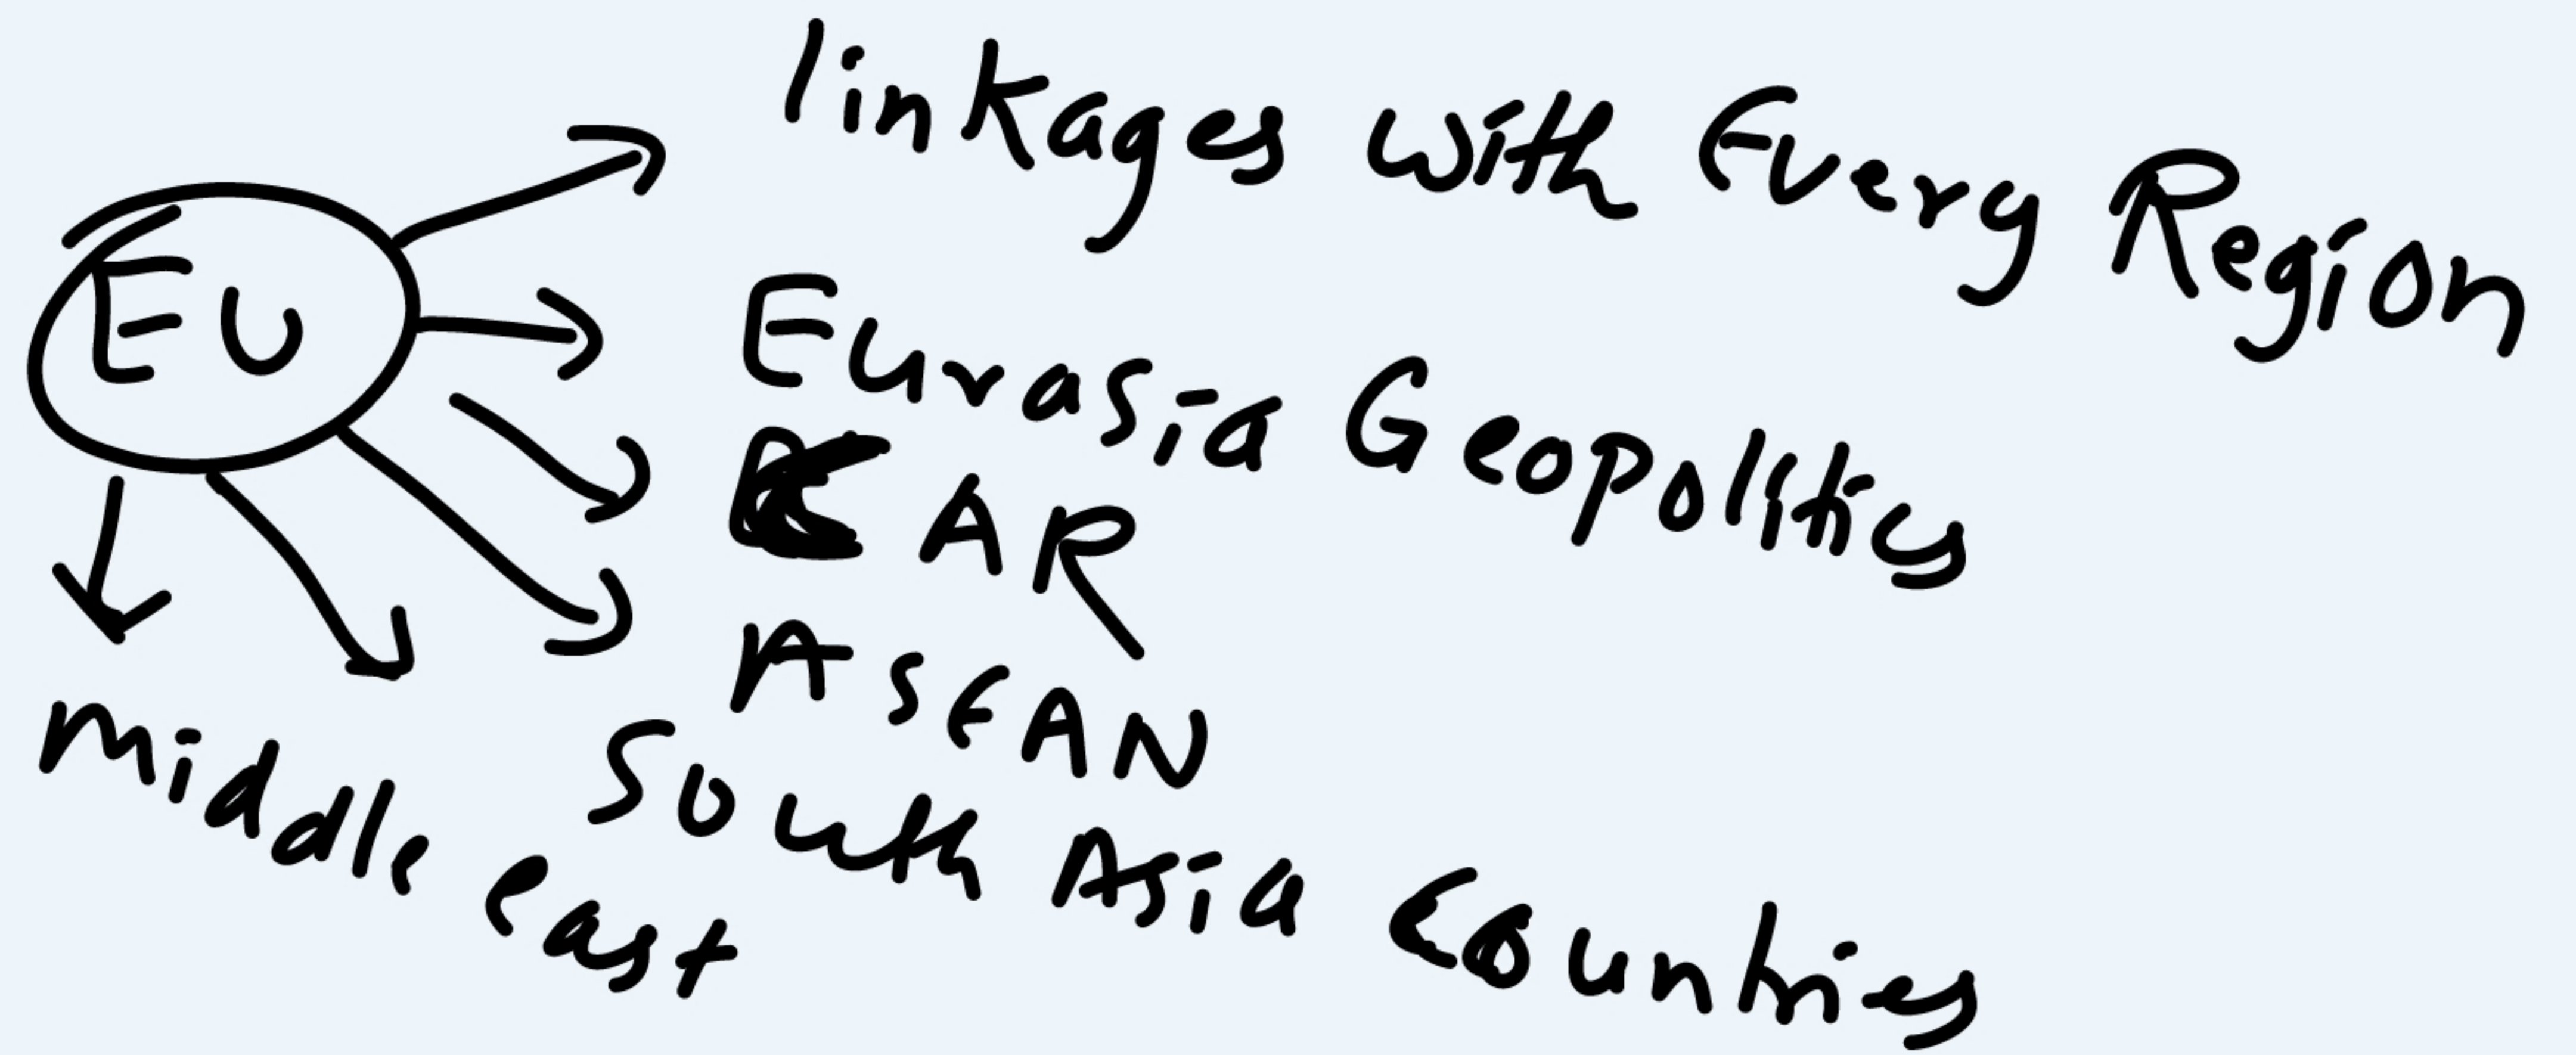 linkages with Every Region
EU
Eurasia Geopolitics
CAR
ASEAN
South Asia Countries
Middle east